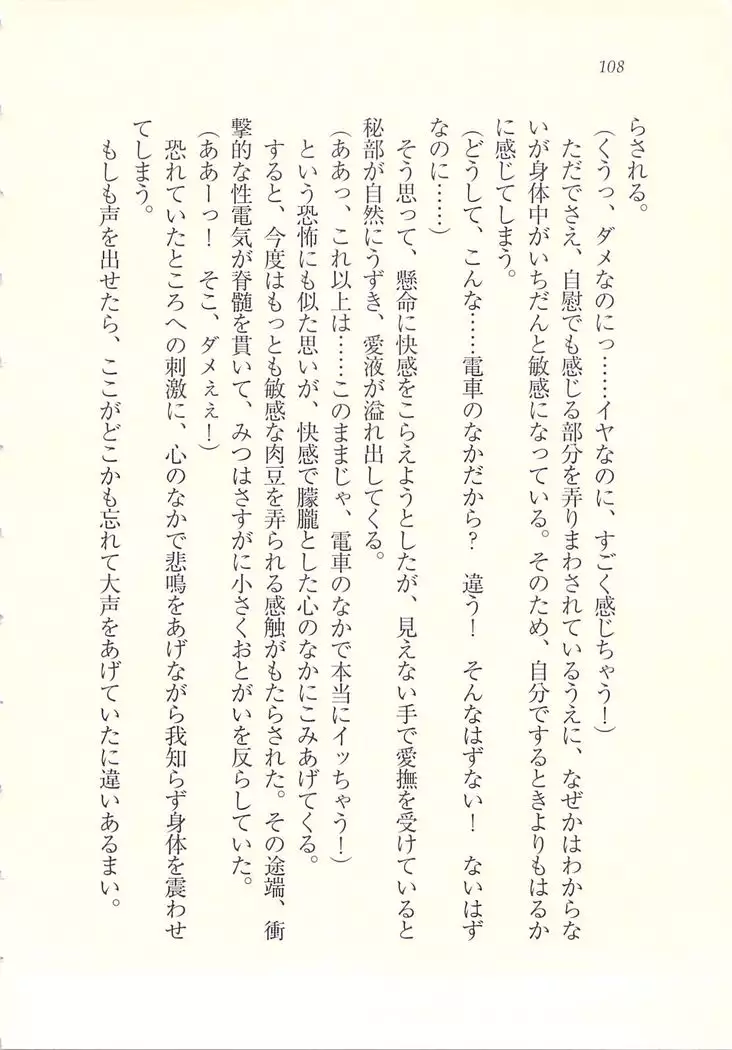 108
らされる。
(くうっ、ダメなのにっ……イヤなのに、すごく感じちゃう!)
ただでさえ、自慰でも感じる部分を弄りまわされているうえに、なぜかはわからな
いが身体中がいちだんと敏感になっている。そのため、自分でするときよりもはるか
に感じてしまう。
(どうして、こんな……電車のなかだから? 違う! そんなはずない! ないはず
なのに……)
そう思って、懸命に快感をこらえようとしたが、見えない手で愛撫を受けていると
秘部が自然にうずき、愛液が溢れ出してくる。
(ああっ、これ以上は……このままじゃ、電車のなかで本当にイッちゃう!)
という恐怖にも似た思いが、快感で朦朧とした心のなかにこみあげてくる。
すると、今度はもっとも敏感な肉豆を弄られる感触がもたらされた。その途端、衝
撃的な性電気が脊髄を貫いて、みつはさすがに小さくおとがいを反らしていた。
(ああーっ! そこ、ダメぇぇ!)
恐れていたところへの刺激に、心のなかで悲鳴をあげながら我知らず身体を震わせ
てしまう。
もしも声を出せたら、ここがどこかも忘れて大声をあげていたに違いあるまい。